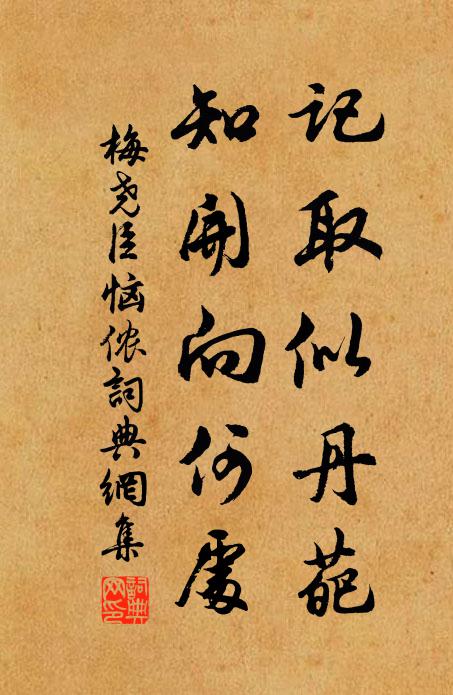 記取似丹葩
知開向何處
梅堯臣惱儂詞典網集
詞典網印